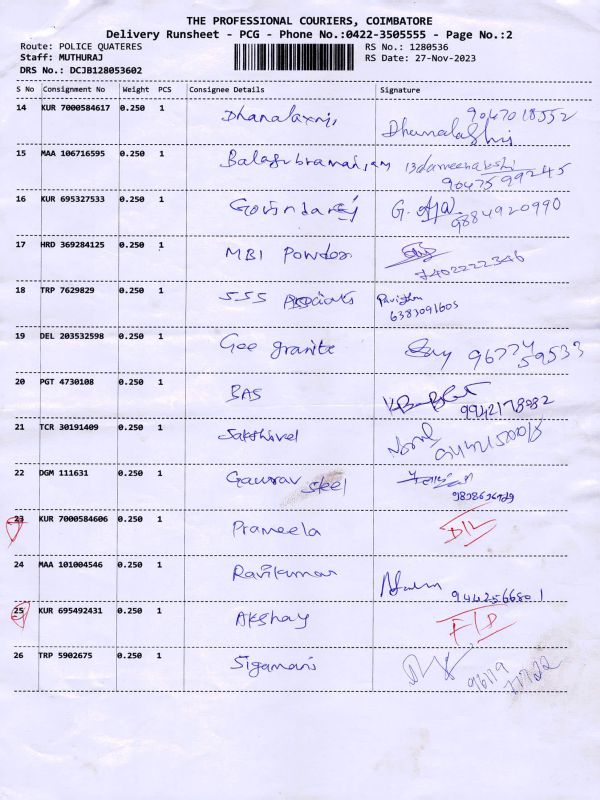 THE PROFESSIONAL COURIERS, COIMBATORE
Delivery Runsheet - PCG - Phone No.:0422-3505555 - Page No.:2
Route: POLICE QUATERES RS No.: 1280536
Staff: MUTHURAJ RS Date: 27-Nov-2023
DRS No.: DCJB128053602
S No Consignment No Weight PCS Consignee Details Signature
14 KUR 7000584617 0.250 1 Dhanalaxmi, 9047018552
15 MAA 106716595 0.250 1 Balasubramaniam
9047599245
16 KUR 695327533 0.250 1 Govindaraj G.
9884920990
17 HRD 369284125 0.250 1 MBI Powder
7402222346
18 TRP 7629829 0.250 1 SSS
6383091605
19 DEL 203532598 0.250 1 Gee granite 9677459533
20 PGT 4730108 0.250 1 BAS
9942178982
21 TCR 30191409 0.250 1 Sakthivel
22 DGM 111631 0.250 1 Gaurav steel
23 KUR 7000584606 0.250 1 Prameela D/L
24 MAA 101004546 0.250 1 Ravikumar
9442566801
25 KUR 695492431 0.250 1 Akshay F/D
26 TRP 5902675 0.250 1 Sigamani
96119
77722